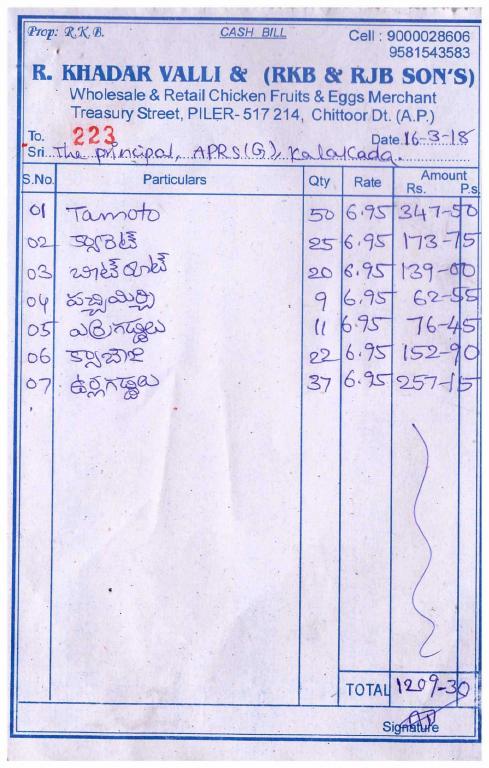 Prop: R.K.B. CASH BILL Cell : 9000028606
9581543583
R. KHADAR VALLI & (RKB & RJB SON'S)
Wholesale & Retail Chicken Fruits & Eggs Merchant
Treasury Street, PILER- 517 214, Chittoor Dt. (A.P.)
To. 223 Date 16-3-18
Sri The principal, APRS(G), Kalakada.
S.No. Particulars Qty Rate Amount
Rs. P.s.
01 Tamoto 50 6.95 347-50
02 క్యారెట్ 25 6.95 173-75
03 బీట్ రూట్ 20 6.95 139-00
04 పచ్చిమిర్చి 9 6.95 62-55
05 ఎర్రగడ్డలు 11 6.95 76-45
06 క్యాబేజి 22 6.95 152-90
07 ఉర్లగడ్డలు 37 6.95 257-15
TOTAL 1209-30
Signature